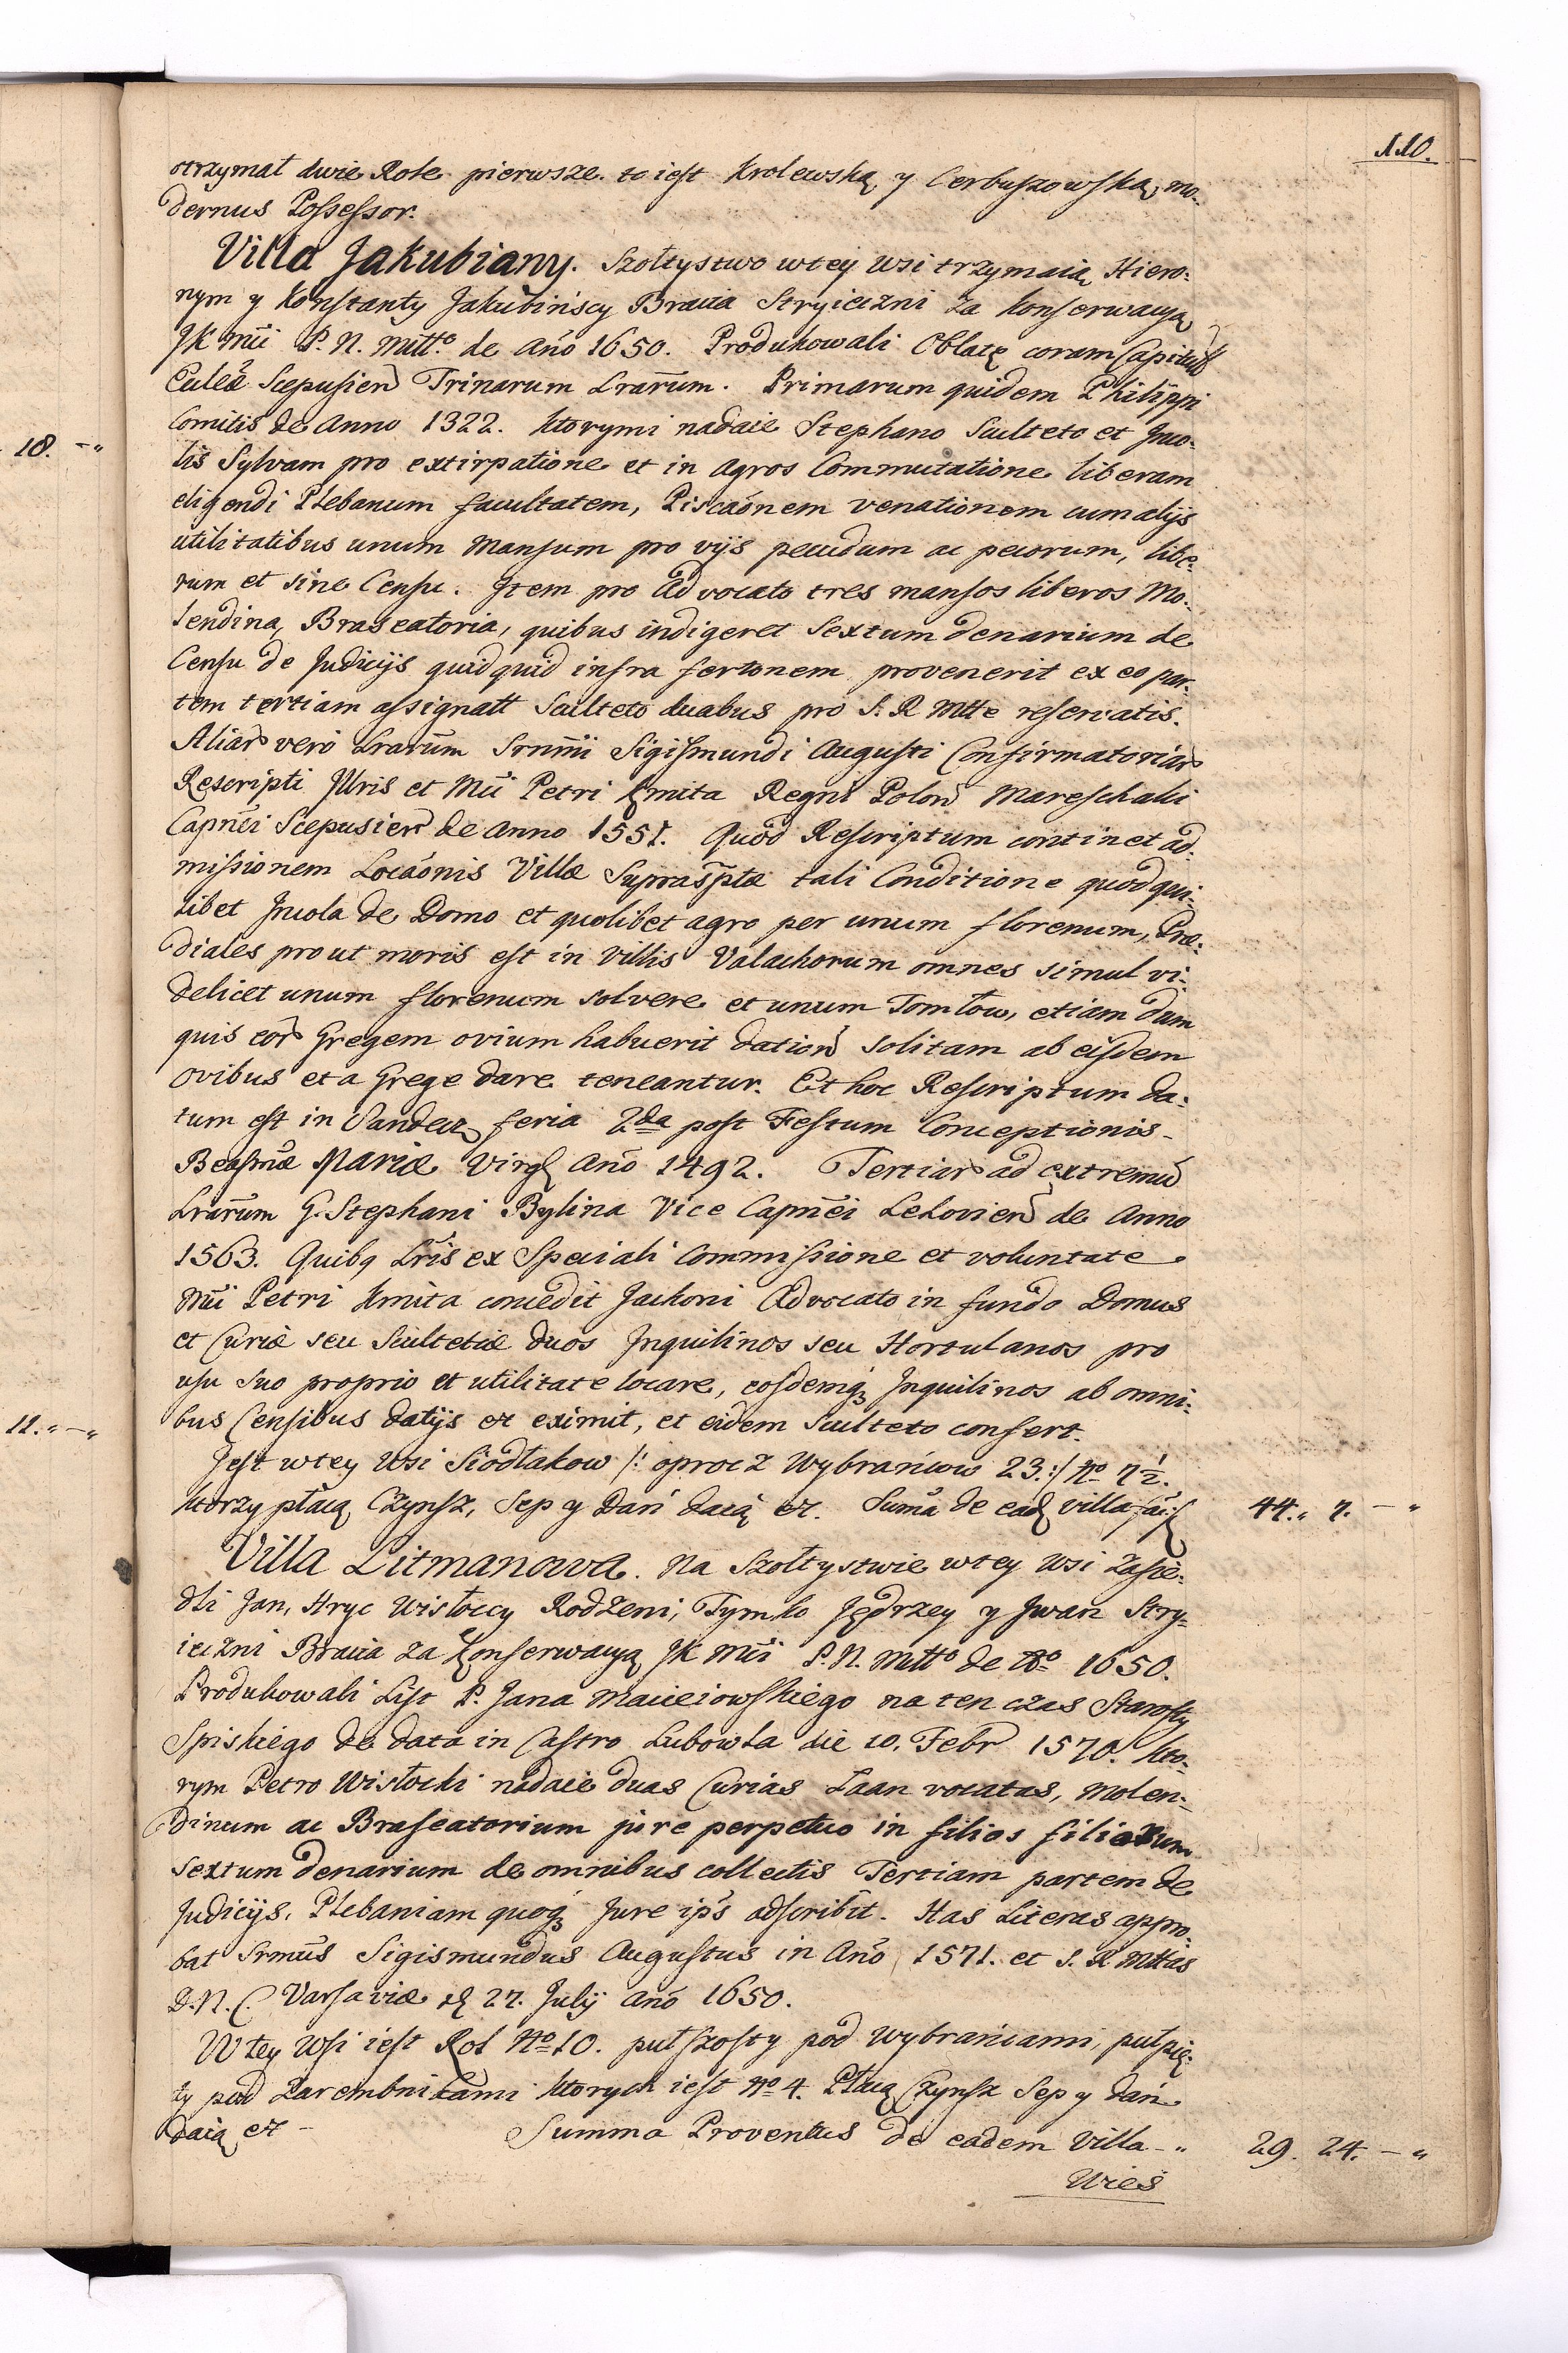 110.
otrzymał dwie Role pierwsze to iest Krolewską y Cerbuszowską, mo-
dernus Possessor.
Villa Jakubiany. Szołtystwo w tey Wsi trzymaią Hiero-
nym y Konstanty Jakubińscy Bracia Stryieczni za Konserwacyą
JK Mci P. N. Mttō. de Año 1650. Produkowali Oblatę coram Capitul
Eccleæ Scepusien Trinarum Lrarum. Primarum quidem Philippi
Comitis de Anno 1322. ktorymi nadaie Stephano Sculteto et Inco-
lis Sylvam pro extirpatione et in Agros Commutatione liberam
eligendi Plebanum facultatem, Piscaōnem venationem cum alijs
utilitatibus unum Mansum pro vijs pecudum ac pecorum, libe-
rum et sine Censu. Item pro Advocato tres mansos liberos Mo-
lendina, Braseatoria, quibus indigeret Sextum denarium de
Censu de Judicijs quidquid infra fertonem provenerit ex eo par-
tem tertiam assignatt Sculteto duabus pro S. R Mtte reservatis.
Aliar vero Lrarum Srnmi Sigismundi Augusti Confirmatoriar
Rescripti Illris et Mci Petri Kmita Regni Polon Mareschalci
Capnei Scepusien de Anno 1551. Quod Rescriptum continet ad-
missionem Locaōnis Villæ Suprasptæ tali Conditione quod qui-
libet Incola de Domo et quolibet agro per unum florenum, Præ-
diales prout moris est in Villis Valachorum omnes simul vi-
delicet unum florenum solvere et unum Tomłow, etiam dum
quis eor Gregem ovium habuerit dation solitam ab eisdem
ovibus et a Grege dare teneantur. Et hoc Rescriptum da-
tum est in Vandecz feria 2da post Festum Conceptionis
Beatmæ Mariæ Virg Año 1492. Tertiar ad extremū
Lrarum G. Stephani Bylina Vice Capnei Lelovien de Anno
1563. Quibq Lris ex Speciali Commissione et voluntate
Mci Petri Kmita concedit Jackoni Advocato in fundo Domus
et Curiæ seu Scultetiæ duos Inquilinos seu Hortulanos pro
usu suo proprio et utilitate locare, eosdemq Inquilinos ab omni-
bus Censibus datijs er eximit, et eidem Sculteto confert.
Jest w tey Wsi Siodłakow /: oprocz Wybrańcow 23.:/ No 7½.
ktorzy płacą Czynsz, Sep y Dań daią er. Suma de ead villa fac 44. 7. —
Villa Litmanowa. Na Szołtystwie w tey Wsi zasie-
dli Jan, Hryc Wisłoccy Rodzeni, Tymko Jędrzey y Jwan Stry-
ieczni Bracia za Konserwacyą JK Mci P. N. Mttō de Ao 1650.
Produkowali List P. Jana Macieiowskiego na ten czas Starosty
Spiskiego de data in Castro Lubowla die 10. Febr 1570. kto-
rym Petro Wisłocki nadaie duas Curias Łaan vocatas, Molen-
dinum ac Braseatorium jure perpetuo in filios filiorum
Sextum denarium de omnibus collectis Tertiam partem de
Judicijs, Plebaniam quoq Jure ips adscribit. Has Literas appro-
bat Srmus Sigismundus Augustus in Año 1571. et S. R Mttas
D. N. C. Varsaviæ d 27. July Año 1650.
W tey Wsi iest Rol No 10. puł szosty pod Wybrańcami, puł pię-
ty pod Zarembnikami ktorych iest No 4. Płacą Czynsz Sep y dań
daią er — Summa Proventus de eadem Villa — 29. 24. —
Wieś
18. —
11. —